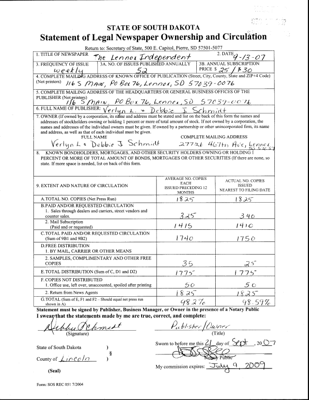 STATE OF SOUTH DAKOTA
Statement of Legal Newspaper Ownership and Circulation
Return to: Secretary of State, 500 E. Capitol, Pierre, SD 57501-5077
1. TITLE OF NEWSPAPER The Lennox Independent 2. DATE 9-13-07
3. FREQUENCY OF ISSUE weekly 3A. NO. OF ISSUES PUBLISHED ANNUALLY 52 3B. ANNUAL SUBSCRIPTION PRICE $ 25 / $30
4. COMPLETE MAILING ADDRESS OF KNOWN OFFICE OF PUBLICATION (Street, City, County, State and ZIP+4 Code)
(Not printer) 116 S Main, PO Box 76, Lennox, SD 57039-0076
5. COMPLETE MAILING ADDRESS OF THE HEADQUARTERS OR GENERAL BUSINESS OFFICES OF THE
PUBLISHER (Not printer)
116 S Main, PO Box 76, Lennox, SD 57039-0076
6. FULL NAME OF PUBLISHER Verlyn L. + Debbie J. Schmidt
7. OWNER (If owned by a corporation, its name and address must be stated and list on the back of this form the names and
addresses of stockholders owning or holding 1 percent or more of total amount of stock. If not owned by a corporation, the
names and addresses of the individual owners must be given. If owned by a partnership or other unincorporated firm, its name
and address, as well as that of each individual must be given.
FULL NAME COMPLETE MAILING ADDRESS
Verlyn L + Debbie J Schmidt 27736 467th Ave, Lennox
8. KNOWN BONDHOLDERS, MORTGAGES, AND OTHER SECURITY HOLDERS OWNING OR HOLDING 1
PERCENT OR MORE OF TOTAL AMOUNT OF BONDS, MORTGAGES OR OTHER SECURITIES (If there are none, so
state. If more space is needed, list on back of this form.
9. EXTENT AND NATURE OF CIRCULATION AVERAGE NO. COPIES EACH ISSUED PRECEDING 12 MONTHS ACTUAL NO. COPIES ISSUED NEAREST TO FILING DATE
A. TOTAL NO. COPIES (Net Press Run) 1825 1825
B. PAID AND/OR REQUESTED CIRCULATION
1. Sales through dealers and carriers, street vendors and
counter sales. 325 340
2. Mail Subscription
(Paid and or requested) 1415 1410
C. TOTAL PAID AND/OR REQUESTED CIRCULATION
(Sum of 9B1 and 9B2) 1740 1750
D. FREE DISTRIBUTION
1. BY MAIL, CARRIER OR OTHER MEANS
2. SAMPLES, COMPLIMENTARY AND OTHER FREE
COPIES 35 25
E. TOTAL DISTRIBUTION (Sum of C, D1 and D2) 1775 1775
F. COPIES NOT DISTRIBUTED
1. Office use, left over, unaccounted, spoiled after printing 50 50
2. Return from News Agents 1825 1825
G. TOTAL (Sum of E, F1 and F2 - Should equal net press run
shown in A) 98.2% 98.59%
Statement must be signed by Publisher, Business Manager, or Owner in the presence of a Notary Public
I swear that the statements made by me are true, correct, and complete:
Debbie Schmidt Publisher/Owner
(Signature) (Title)
State of South Dakota )
§
County of Lincoln )
Sworn to before me this day of Sept, 2007
(Seal)
My commission expires: July 9, 2009
Form: SOS REC 051 7/2004